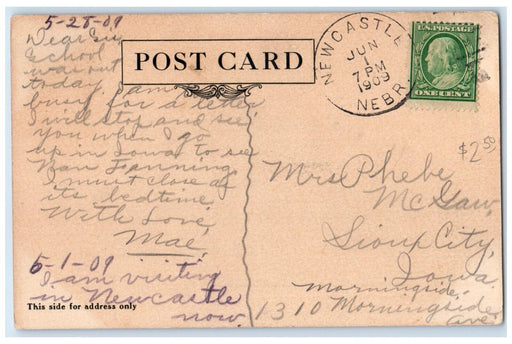 5-28-09
Dear
School
was out
today, I am
busy for a letter
I will stop and see
you when I go
up in Iowa to see
Nan Fanning
I must close as
its bedtime
With Love,
Mae,
5-1-09
I am visiting
in Newcastle
now.
This side for address only
POST CARD
NEWCASTLE
JUN
1
7 PM
1909
NEBR
U.S. POSTAGE
ONE CENT
$2.50
Mrs Phebe
McGaw,
Sioux City,
Iowa.
Morningside,
1310 Morningside
Ave.